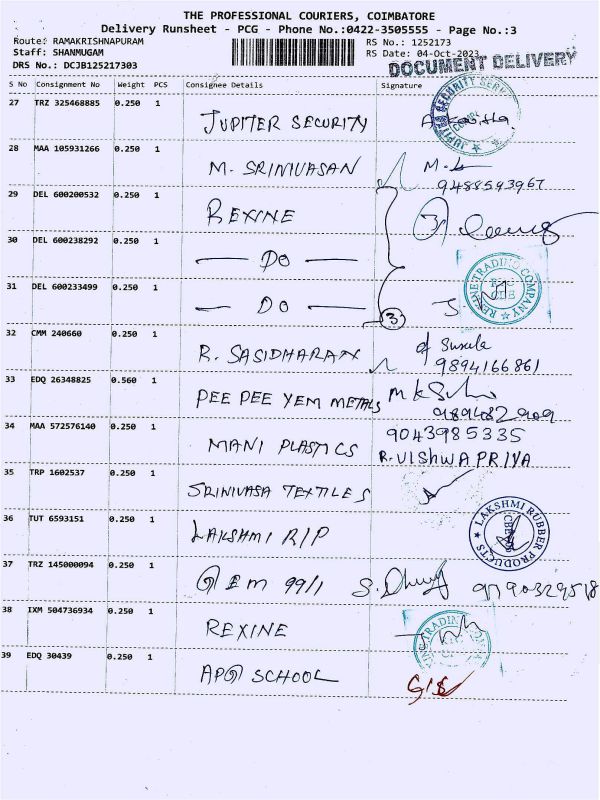 THE PROFESSIONAL COURIERS, COIMBATORE
Delivery Runsheet - PCG - Phone No.:0422-3505555 - Page No.:3
Route: RAMAKRISHNAPURAM RS No.: 1252173
Staff: SHANMUGAM RS Date: 04-Oct-2023
DRS No.: DCJB125217303 DOCUMENT DELIVERY
S No Consignment No Weight PCS Consignee Details Signature
27 TRZ 325468885 0.250 1 JUPITER SECURITY
28 MAA 105931266 0.250 1 M. SRINIVASAN
9488593967
29 DEL 600200532 0.250 1 REXINE
30 DEL 600238292 0.250 1 — DO —
REXINE TRADING COMPANY
31 DEL 600233499 0.250 1 — DO — 3
32 CMM 240660 0.250 1 R. SASIDHARAN
9894166861
33 EDQ 26348825 0.560 1 PEE PEE YEM METALS
989482909
34 MAA 572576140 0.250 1 MANI PLASTICS 9043985335
R.VISHWAPRIYA
35 TRP 1602537 0.250 1 SRINIVASA TEXTILES
36 TUT 6593151 0.250 1 LAKSHMI R/P LAKSHMI RUBBER PRODUCTS
37 TRZ 145000094 0.250 1 GEM 99/1 9790329518
38 IXM 504736934 0.250 1 REXINE
39 EDQ 30439 0.250 1 APG SCHOOL